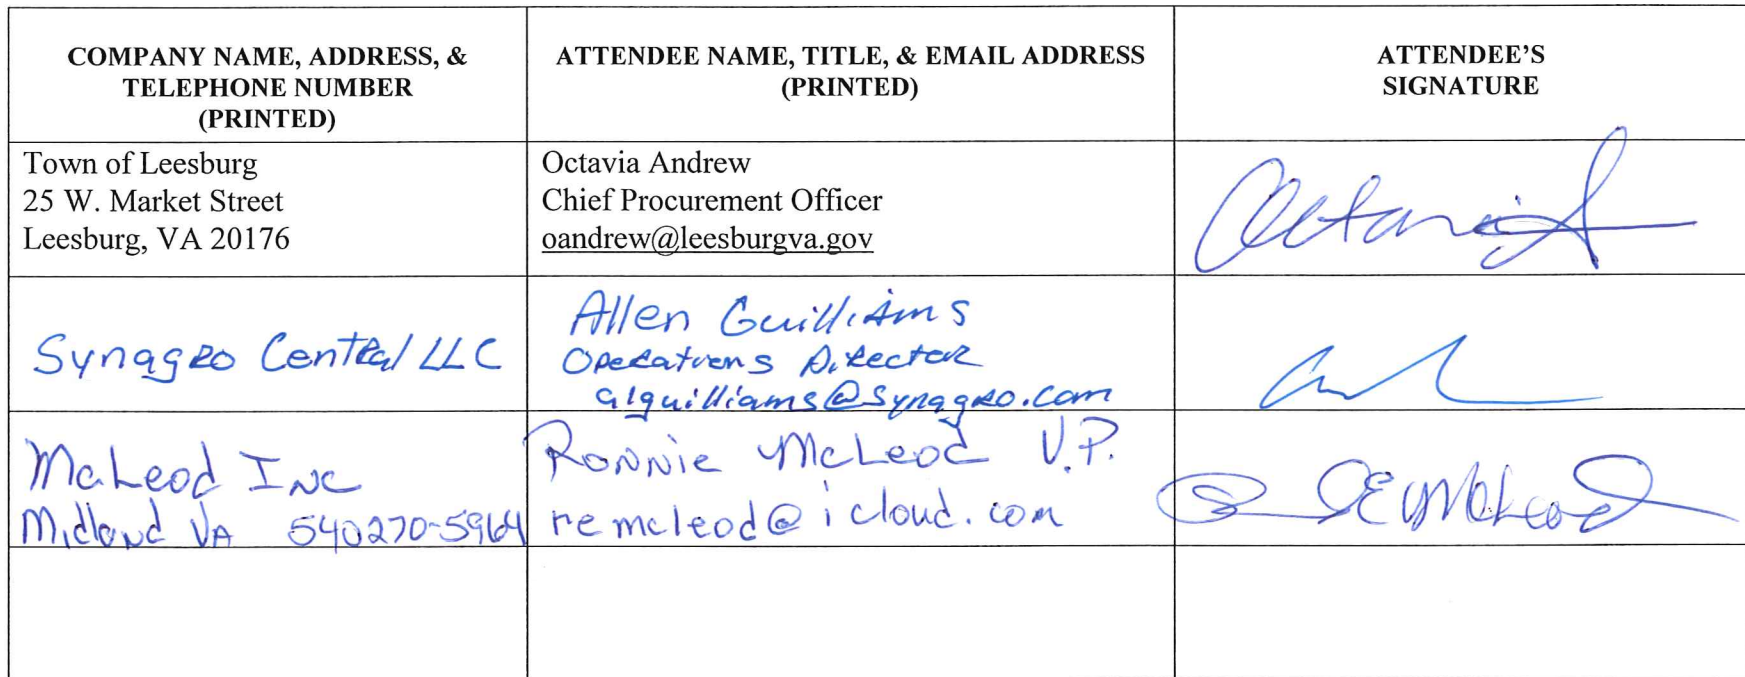 COMPANY NAME, ADDRESS, &
TELEPHONE NUMBER
(PRINTED)
ATTENDEE NAME, TITLE, & EMAIL ADDRESS
(PRINTED)
ATTENDEE'S
SIGNATURE
Town of Leesburg
25 W. Market Street
Leesburg, VA 20176
Octavia Andrew
Chief Procurement Officer
oandrew@leesburgva.gov
Octavia A
Synagro Central LLC
Allen Guilliams
Operations Director
alguilliams@synagro.com
McLeod Inc
Midland VA 540270-5964
Ronnie McLeod V.P.
remcleod@icloud.com
RE McLeod